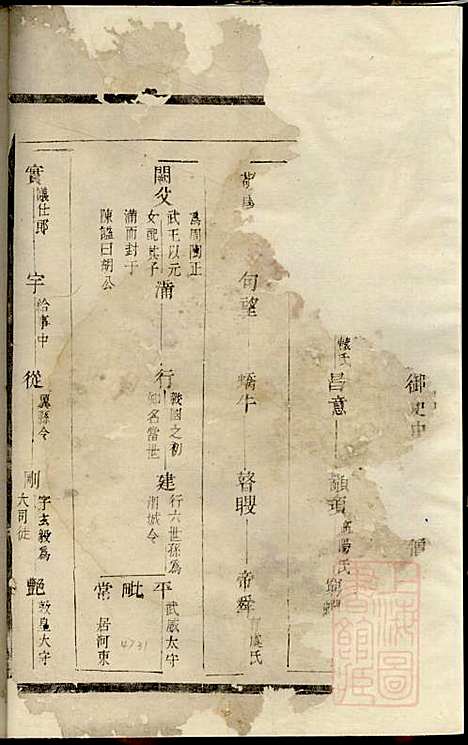 御史中
懷氏
昌意
顓頊
高陽氏
窮蟬
句望
蟜牛
瞽瞍
帝舜
有虞氏
閼父
為周陶正
武王以元
女配其子
滿而封于
陳諡曰胡公
滿
行
戰國之初
知名當世
建
行六世孫為
渭城令
平
武威太守
毗
常
居河東
4731
實
議仕郎
宇
給事中
從
襄縣令
剛
字玄毅為
大司徒
艷
敦皇大守
上海圖書館藏